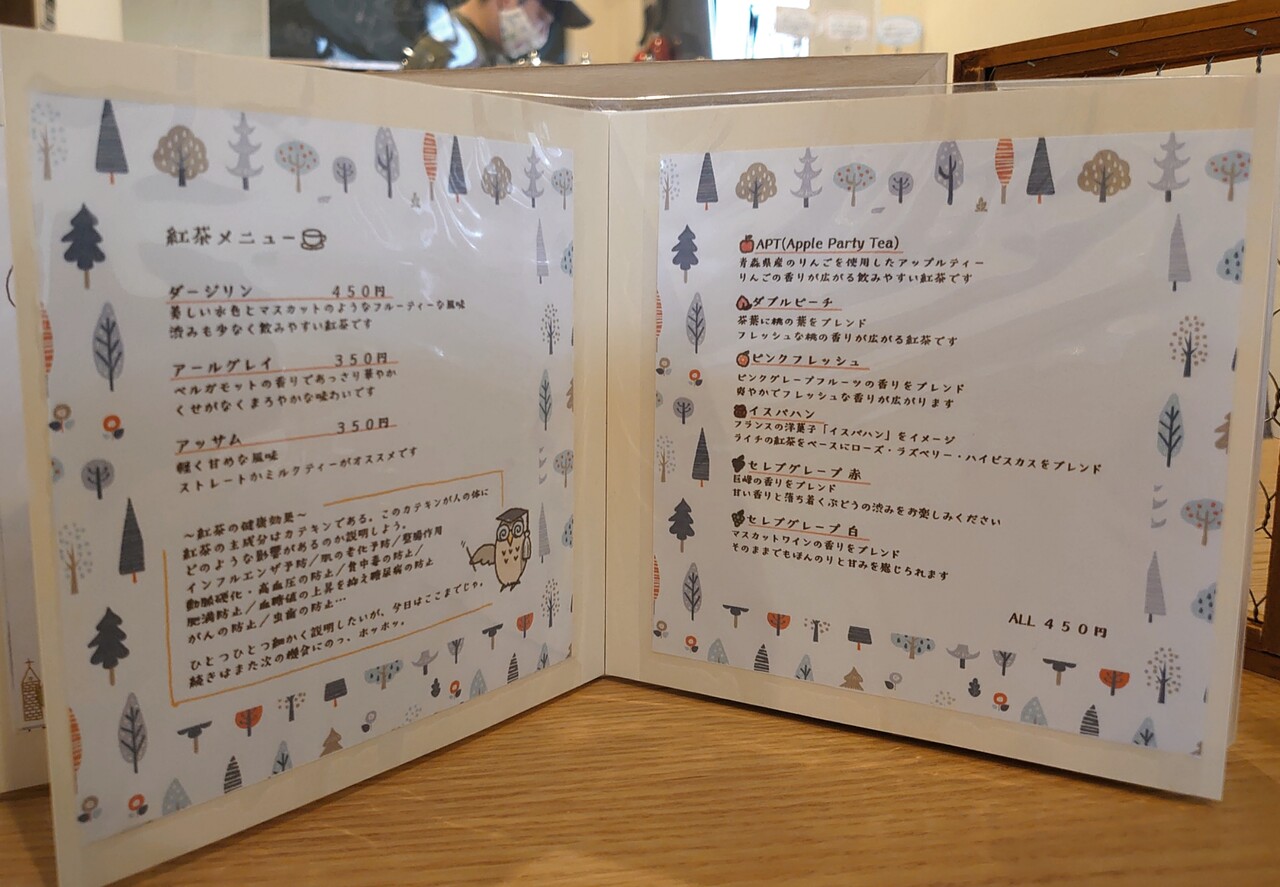 紅茶メニュー
ダージリン 450円
美しい水色とマスカットのようなフルーティーな風味
渋みも少なく飲みやすい紅茶です
アールグレイ 350円
ベルガモットの香りであっさり華やか
くせがなくまろやかな味わいです
アッサム 350円
軽く甘めな風味
ストレートかミルクティーがオススメです
～紅茶の健康効果～
紅茶の主成分はカテキンである。このカテキンが人の体に
どのような影響があるのか説明しよう。
インフルエンザ予防/肌の老化予防/整腸作用
動脈硬化・高血圧の防止/食中毒の防止/
肥満防止/血糖値の上昇を抑え糖尿病の防止
がんの防止/虫歯の防止…
ひとつひとつ細かく説明したいが、今日はここまでじゃ。
続きはまた次の機会にのっ、ホッホッ。
APT(Apple Party Tea)
青森県産のりんごを使用したアップルティー
りんごの香りが広がる飲みやすい紅茶です
ダブルピーチ
茶葉に桃の葉をブレンド
フレッシュな桃の香りが広がる紅茶です
ピンクフレッシュ
ピンクグレープフルーツの香りをブレンド
爽やかでフレッシュな香りが広がります
イスパハン
フランスの洋菓子「イスパハン」をイメージ
ライチの紅茶をベースにローズ・ラズベリー・ハイビスカスをブレンド
セレブグレープ 赤
巨峰の香りをブレンド
甘い香りと落ち着くぶどうの渋みをお楽しみください
セレブグレープ 白
マスカットワインの香りをブレンド
そのままでもほんのりと甘みを感じられます
ALL 450円